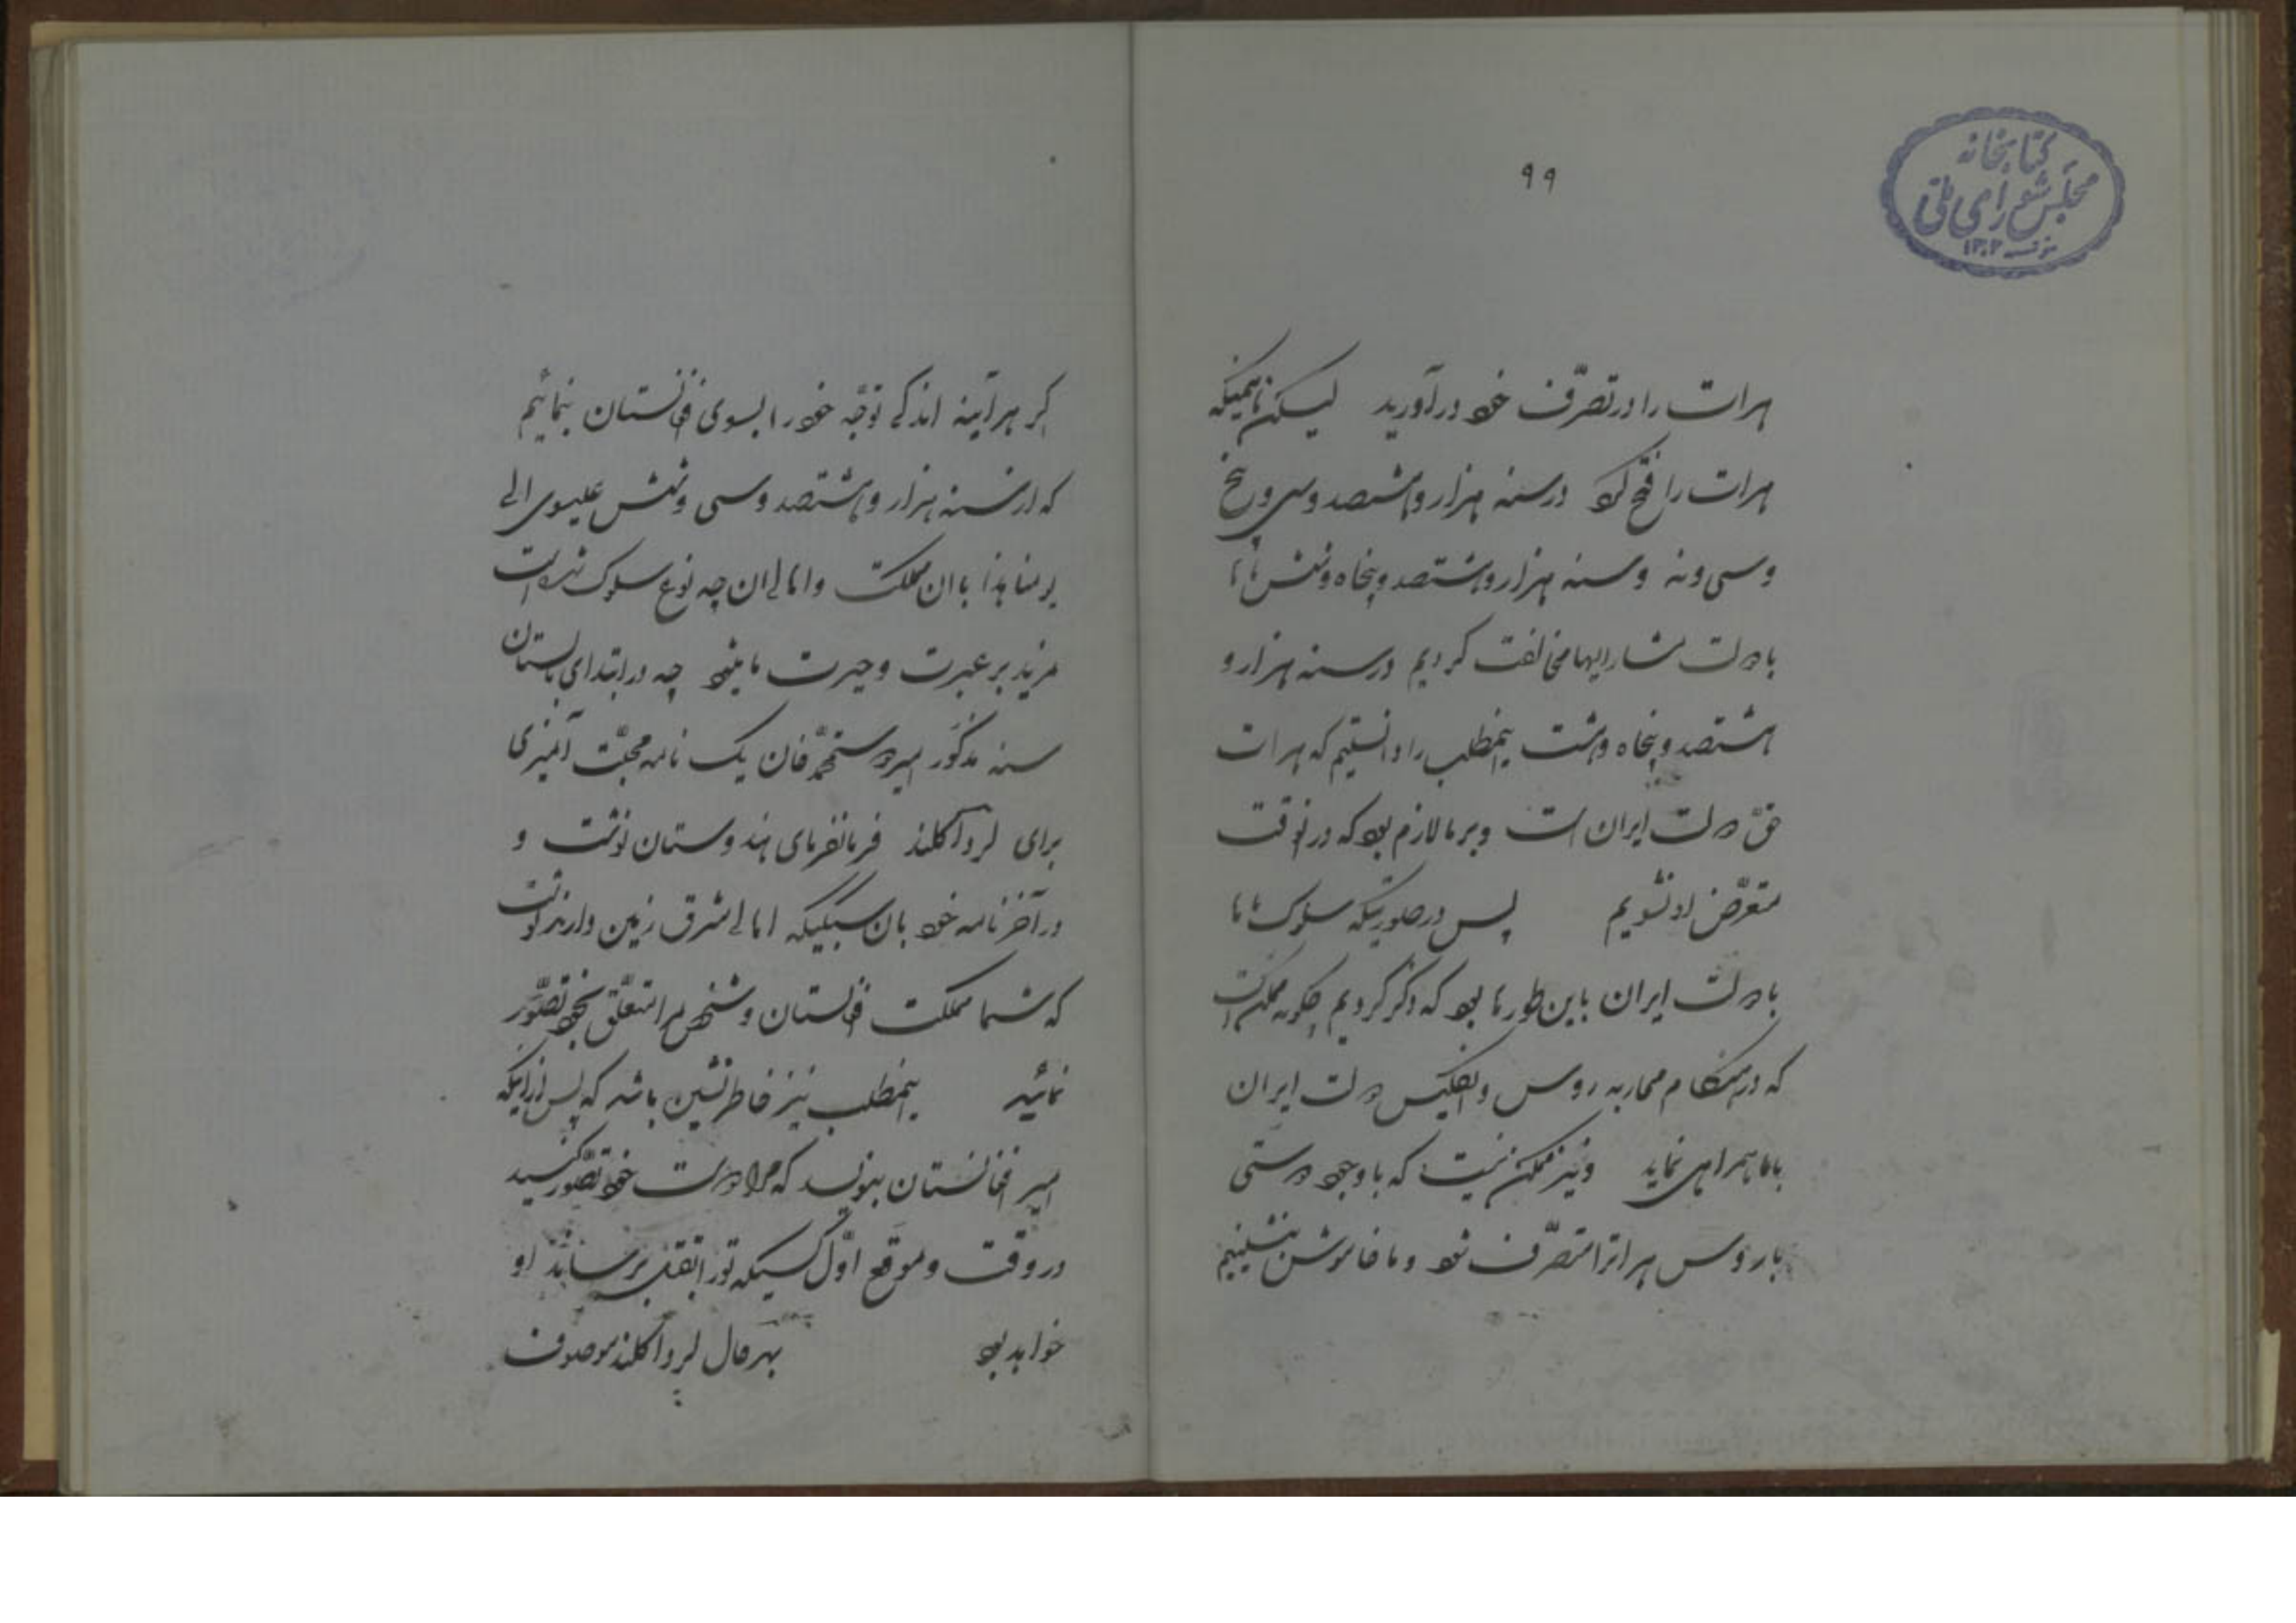 ۹۹
کتابخانه
مجلس شورای ملی
۱۳۰۲
هرات را در تصرّف خود درآورید لیکن همینکه
هرات را فتح کرد در سنه هزار و هشتصد و سی و پنج
و سی و نه و سنه هزار و هشتصد و پنجاه و شش ماها
با دولت مشارالیها مخالفت کردیم در سنه هزار و
هشتصد و پنجاه و هشت اینمطلب را دانستیم که هرات
حقّ دولت ایران است و بر ما لازم بود که در آنوقت
متعرّض او نشویم پس در صورتیکه سلوک ماها
با دولت ایران باین طورها بود که ذکر کردیم چگونه ممکن است
که در هنگام محاربه روس و انگلیس دولت ایران
با ما همراهی نماید و نیز ممکن نیست که با وجود دوستی
با روس هرات را متصرّف شود و ما خاموش بنشینیم
اگر هرآینه اندکی توجّه خود را بسوی افغانستان بنمائیم
که از سنه هزار و هشتصد و سی و شش عیسوی الی
یومنا هذا با آن مملکت و اهالی آن چه نوع سلوک شده است
مزید بر عبرت و حیرت ما میشود چه در ابتدای تابستان
سنه مذکور امیر دوست محمّد خان یک نامه محبّت آمیزی
برای لرد آکلند فرمانفرمای هندوستان نوشت و
در آخر نامه خود بآن سبکیکه اهالی مشرق زمین دارند نوشت
که شما مملکت افغانستان و شخص مرا متعلّق بخود تصوّر
نمائید اینمطلب نیز خاطر نشین باشد که پس از اینکه
امیر افغانستان بنویسد که مرا دوست خود تصوّر کنید
در وقت و موقع اوّل کسیکه تو را بقتل برساند او
خواهد بود بهر حال لرد آکلند موصوف